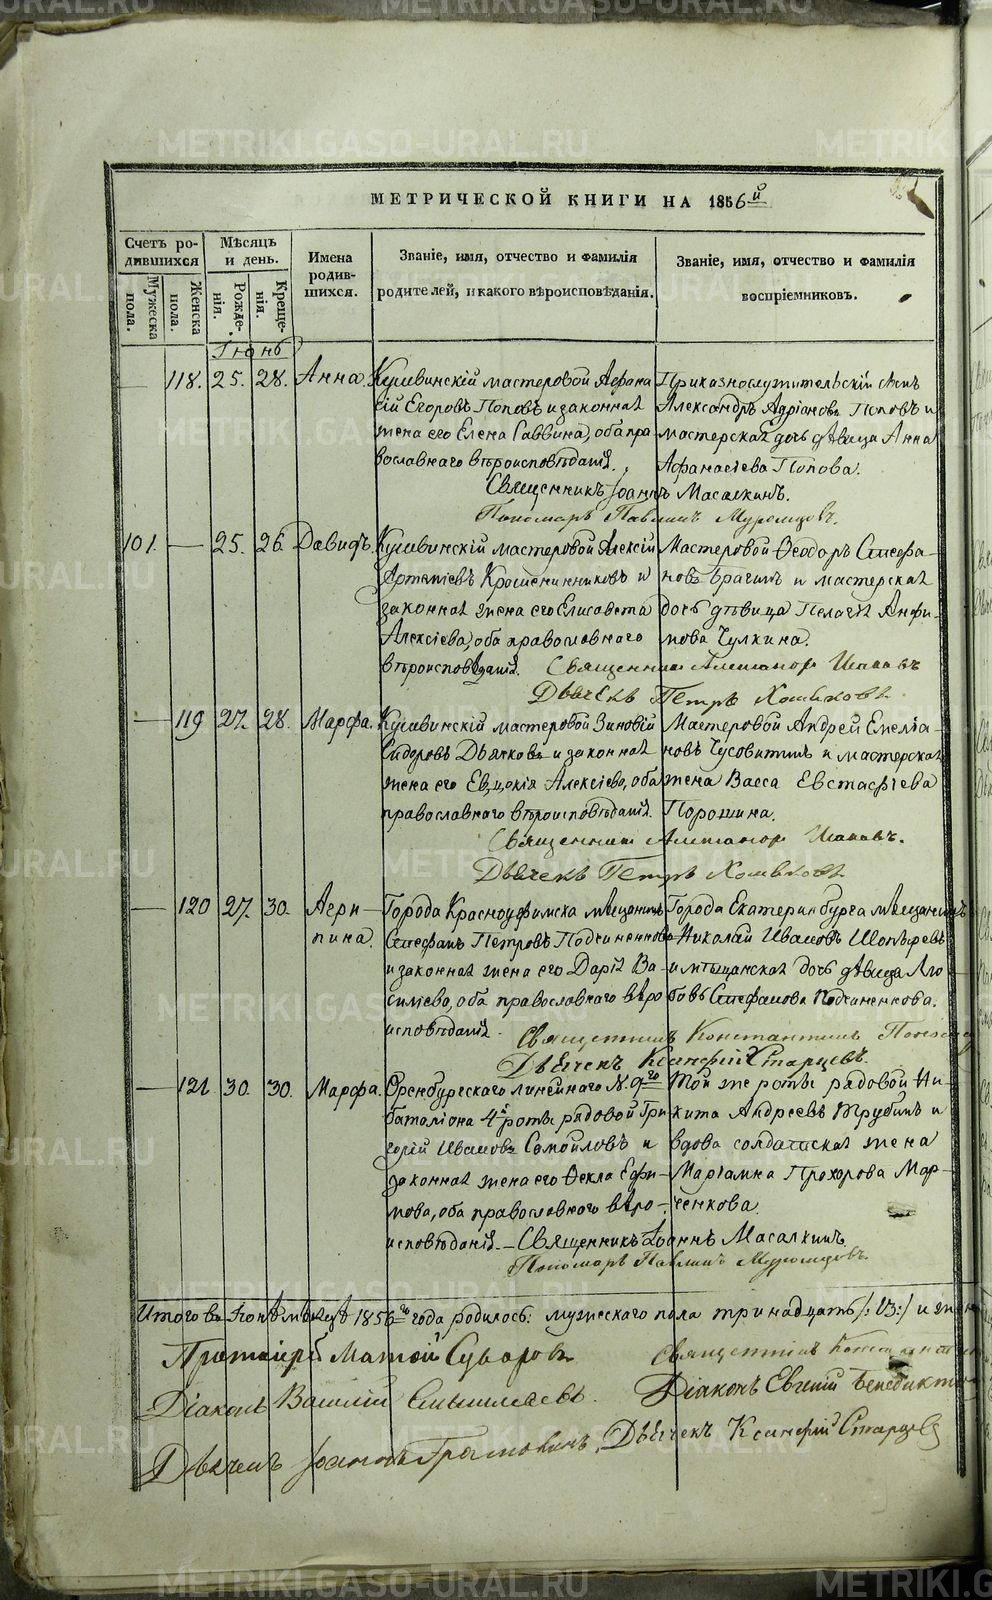 МЕТРИЧЕСКОЙ КНИГИ НА 1856й
Счетъ родившихся
Мѣсяцъ и день.
Имена родившихся.
Званіе, имя, отчество и фамилія родителей, и какого вѣроисповѣданія.
Званіе, имя, отчество и фамилія воспріемниковъ.
Мужеска пола.
Женска пола.
Рожденія.
Крещенія.
Іюнь
118. 25. 28. Анна.
Кушвинскій мастеровой Афана
сій Егоровъ Поповъ и законная
жена его Елена Саввина, оба пра
вославнаго вѣроисповѣданія.
Приказнослужительскій сынъ
Александръ Адріановъ Поповъ и
мастерская дочь дѣвица Анна
Афанасіева Попова.
Священникъ Іоаннъ Масалкинъ.
Пономарь Павлинъ Муромцовъ.
101. — 25. 26. Давидъ.
Кушвинскій мастеровой Алексій
Артеміевъ Крашенинниковъ и
законная жена его Елисавета
Алексіева, оба православнаго
вѣроисповѣданія.
Мастеровой Ѳеодоръ Стефа-
новъ Брагинъ и мастерская
дочь дѣвица Пелагія Анфи-
мова Чулкина.
Священникъ Александръ
Дьячекъ Петръ Хомяковъ
— 119 27. 28. Марфа.
Кушвинскій мастеровой Зиновій
Сидоровъ Дьячковъ и законная
жена его Евдокія Алексіева, оба
православнаго вѣроисповѣданія.
Мастеровой Андрей Емелья-
новъ Чусовитинъ и мастерская
жена Васса Евстафіева
Порошина.
Священникъ Александръ
Дьячекъ Петръ Хомяковъ
— 120 27. 30. Агри-
пина.
Города Красноуфимска мѣщанинъ
Стефанъ Петровъ Подчиненновъ
и законная жена его Дарія Ва-
силіева, оба православнаго вѣро
исповѣданія.
Города Екатеринбурга мѣщанинъ
Николай Ивановъ
и мѣщанская дочь дѣвица Лю
бовь Стефанова Подчиненкова.
Священникъ Константинъ
Дьячекъ Ксенофонтъ Старцевъ.
— 121 30. 30. Марфа.
Оренбургскаго линейнаго № 9го
баталіона 4й роты рядовой Гри
горій Ивановъ Самойловъ и
законная жена его Ѳекла Ефи-
мова, оба православнаго вѣро-
исповѣданія.
Той же роты рядовой Ни-
кита Андреевъ Трубинъ и
вдова солдатская жена
Маріамна Прохорова Мар-
ченкова.
Священникъ Іоаннъ Масалкинъ
Пономарь Павлинъ Муромцовъ.
Итого въ Іюнѣ мѣсяцѣ 1856го года родилось: мужескаго пола тринадцать /:13:/ и
Протоіерей
Священникъ
Діаконъ Василій
Діаконъ Евгеній
Дьячекъ Іоаннъ
Дьячекъ Старцевъ
METRIKI.GASO-URAL.RU